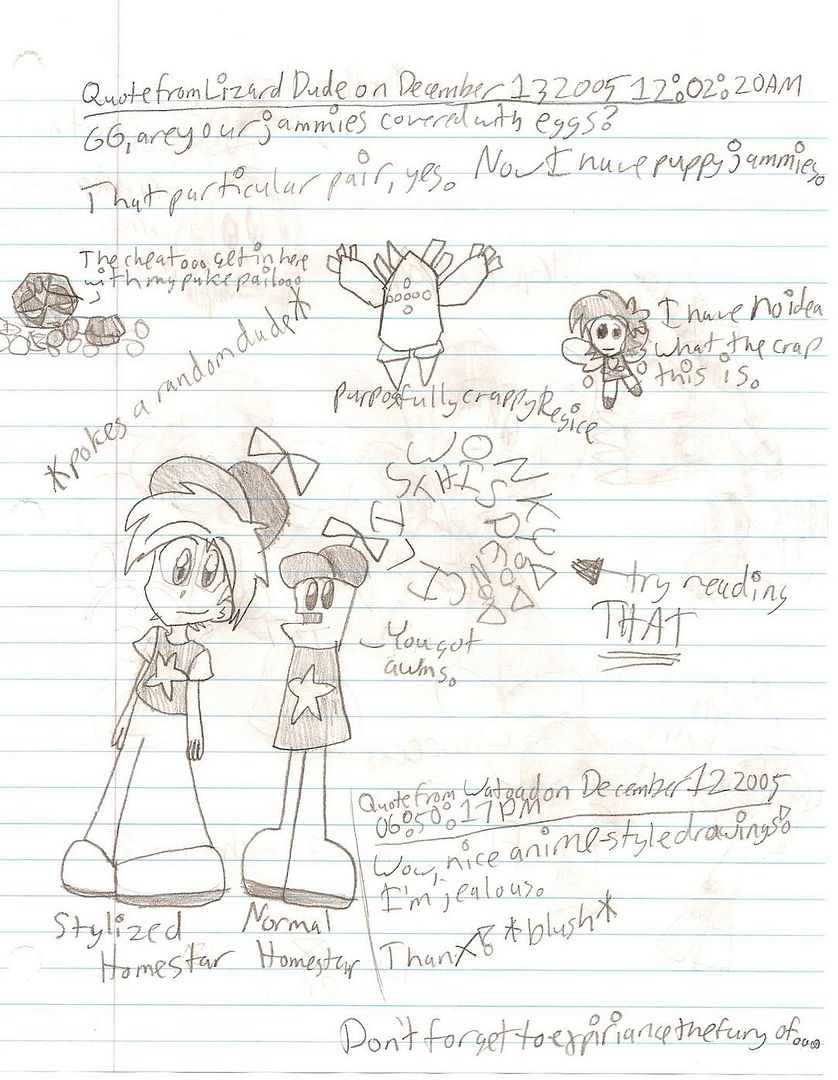 Quote from Lizard Dude on December 13 2005 12:02:20AM
GG, are your jammies covered with eggs?
That particular pair, yes. Now I have puppy jammies.
The cheat... get in here
with my puke pail...
*pokes a random dude*
purposfully crappy Regice
I have no idea
what the crap
this is.
try reading
THAT
You got
awms.
Quote from Watoad on December 12 2005
06:50:17PM
Wow, nice anime-style drawings!
I'm jealous.
Thanx! *blush*
Stylized
Homestar
Normal
Homestar
Don't forget to expiriance the fury of....